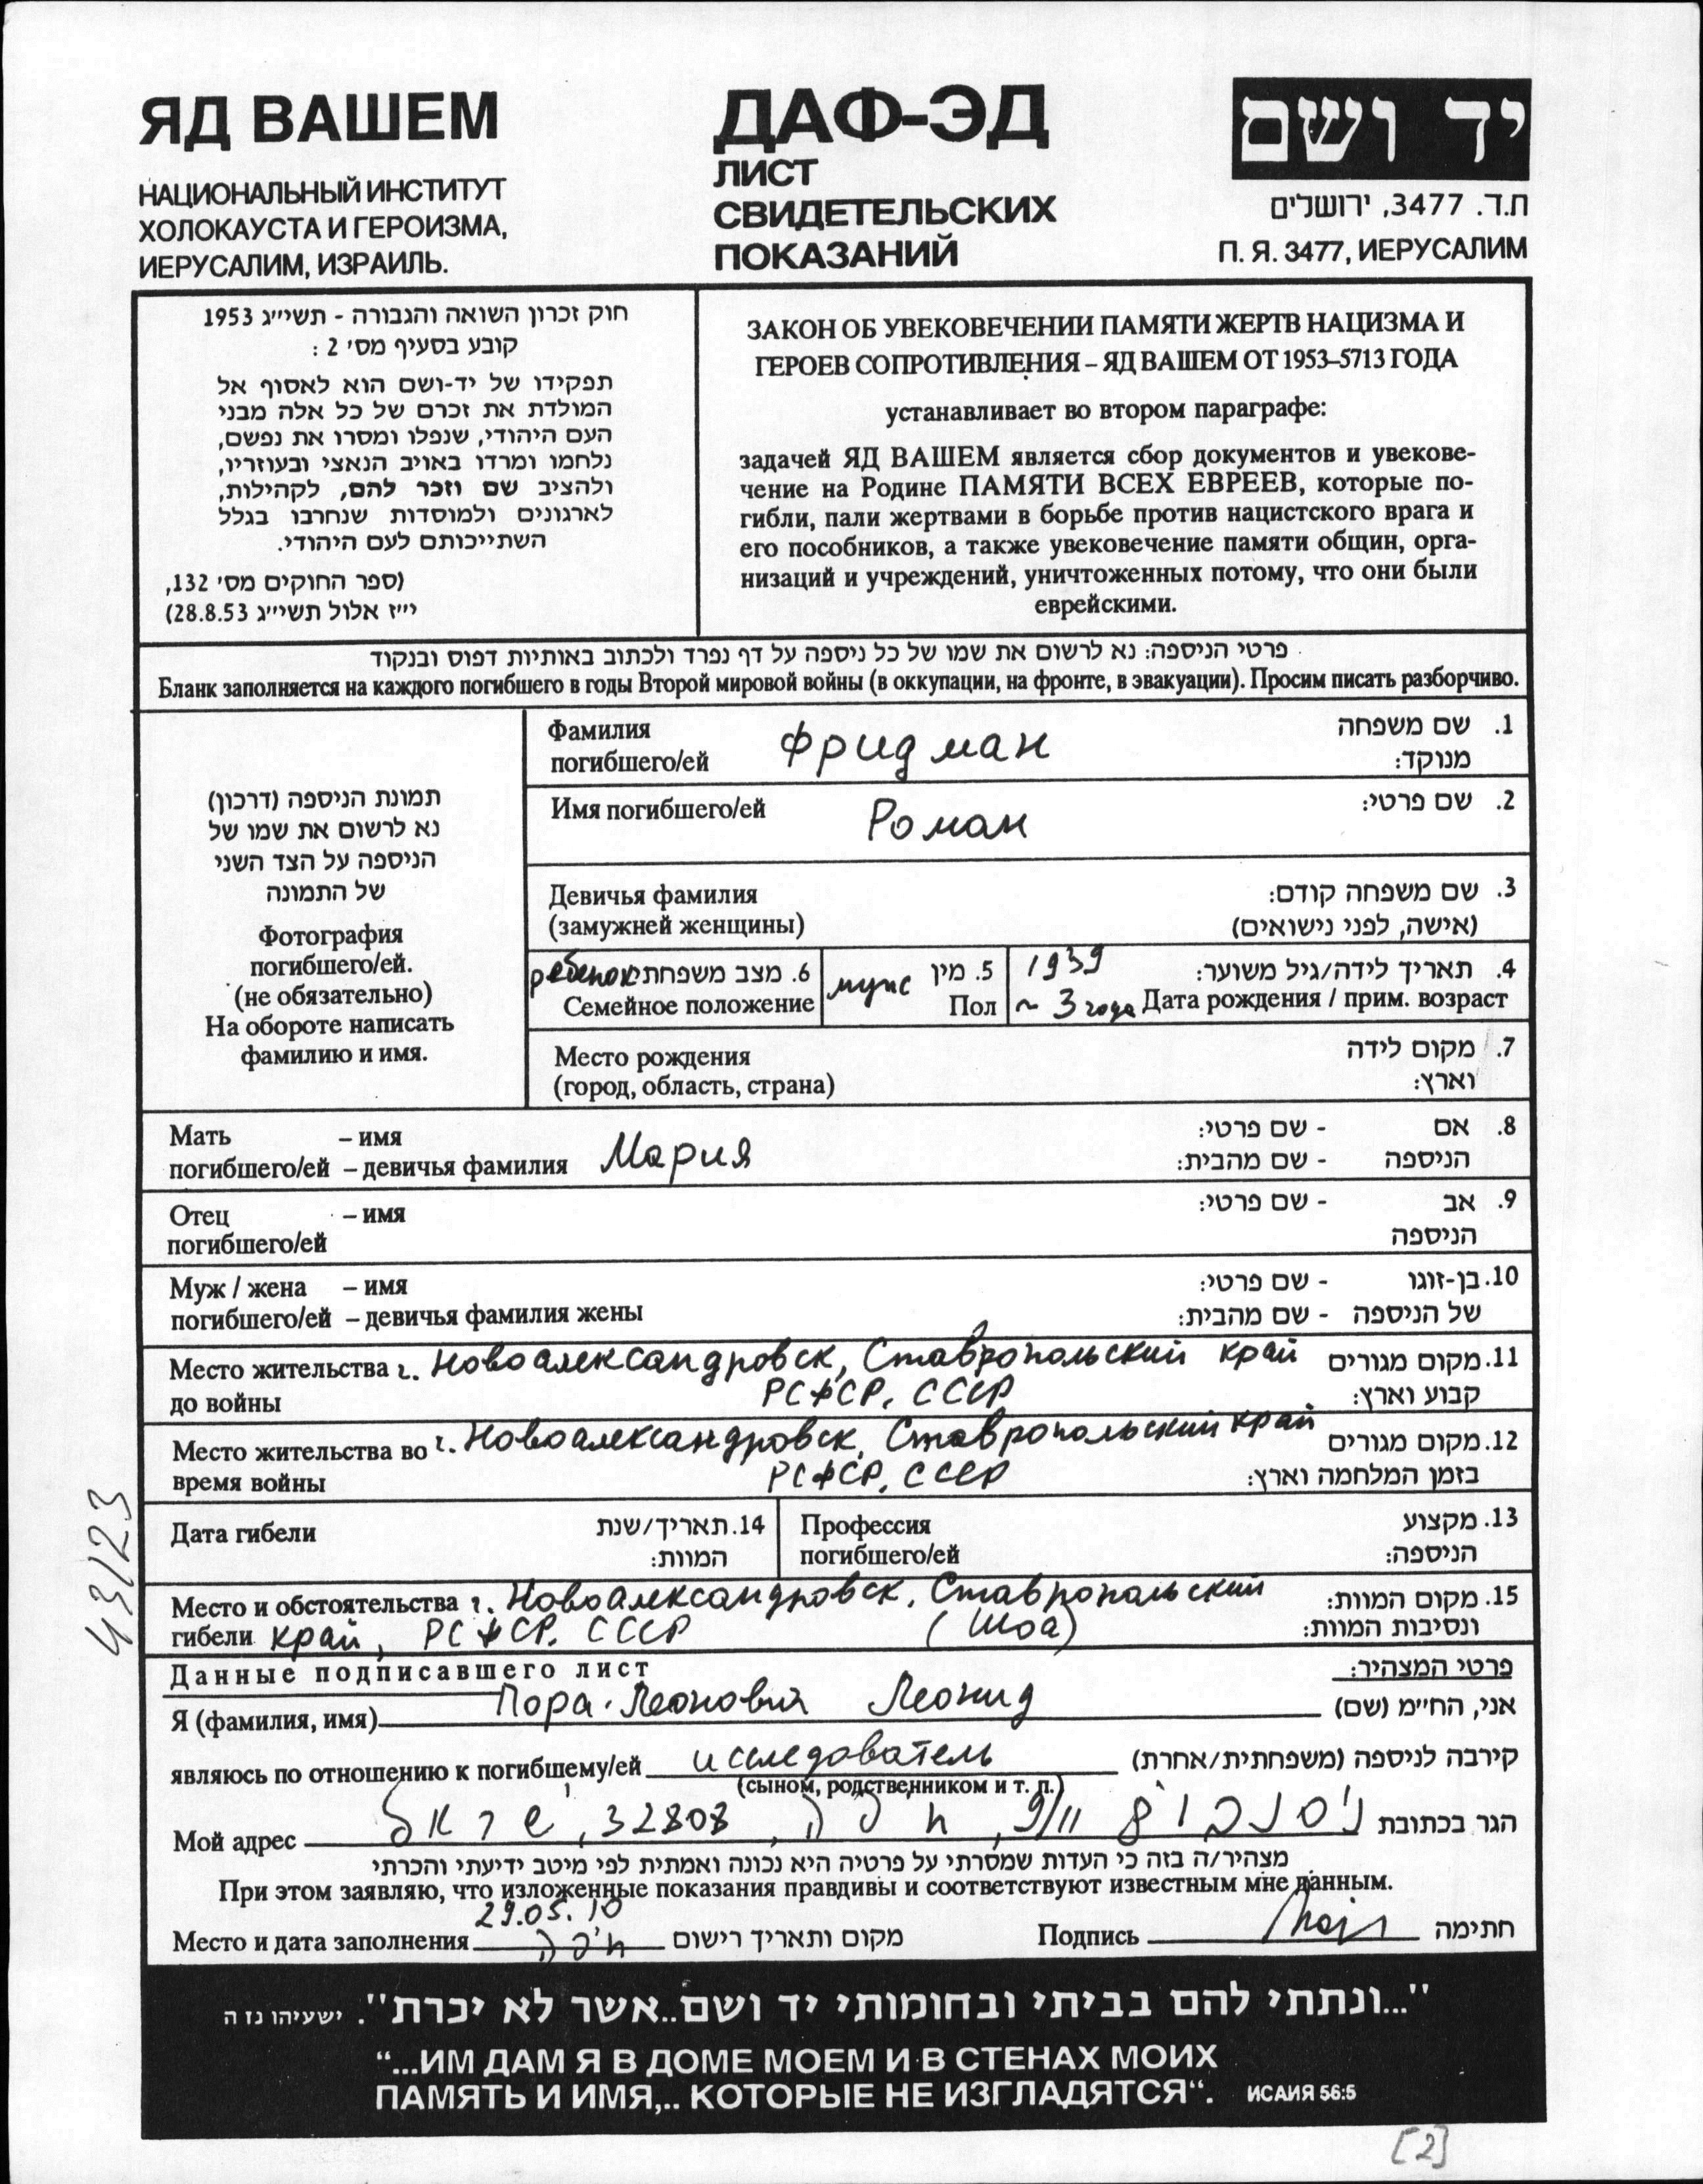 ЯД ВАШЕМ
НАЦИОНАЛЬНЫЙ ИНСТИТУТ
ХОЛОКАУСТА И ГЕРОИЗМА,
ИЕРУСАЛИМ, ИЗРАИЛЬ.
ДАФ-ЭД
ЛИСТ
СВИДЕТЕЛЬСКИХ
ПОКАЗАНИЙ
יד ושם
ת.ד. 3477, ירושלים
П. Я. 3477, ИЕРУСАЛИМ
חוק זכרון השואה והגבורה - תשי״ג 1953
קובע בסעיף מס׳ 2 :
תפקידו של יד-ושם הוא לאסוף אל
המולדת את זכרם של כל אלה מבני
העם היהודי, שנפלו ומסרו את נפשם,
נלחמו ומרדו באויב הנאצי ובעוזריו,
ולהציב שם וזכר להם, לקהילות,
לארגונים ולמוסדות שנחרבו בגלל
השתייכותם לעם היהודי.
(ספר החוקים מס׳ 132,
י״ז אלול תשי״ג 28.8.53)
ЗАКОН ОБ УВЕКОВЕЧЕНИИ ПАМЯТИ ЖЕРТВ НАЦИЗМА И
ГЕРОЕВ СОПРОТИВЛЕНИЯ – ЯД ВАШЕМ ОТ 1953–5713 ГОДА
устанавливает во втором параграфе:
задачей ЯД ВАШЕМ является сбор документов и увекове-
чение на Родине ПАМЯТИ ВСЕХ ЕВРЕЕВ, которые по-
гибли, пали жертвами в борьбе против нацистского врага и
его пособников, а также увековечение памяти общин, орга-
низаций и учреждений, уничтоженных потому, что они были
еврейскими.
פרטי הניספה: נא לרשום את שמו של כל ניספה על דף נפרד ולכתוב באותיות דפוס ובנקוד
Бланк заполняется на каждого погибшего в годы Второй мировой войны (в оккупации, на фронте, в эвакуации). Просим писать разборчиво.
תמונת הניספה (דרכון)
נא לרשום את שמו של
הניספה על הצד השני
של התמונה
Фотография
погибшего/ей.
(не обязательно)
На обороте написать
фамилию и имя.
Фамилия 1. שם משפחה
погибшего/ей Фридман מנוקד:
Имя погибшего/ей Роман 2. שם פרטי:
Девичья фамилия 3. שם משפחה קודם:
(замужней женщины) (אישה, לפני נישואים)
ребенок 6. מצב משפחתי муж 5. מין 1939 4. תאריך לידה/גיל משוער:
Семейное положение Пол ~ 3 года Дата рождения / прим. возраст
Место рождения 7. מקום לידה
(город, область, страна) וארץ:
Мать – имя 8. אם - שם פרטי:
погибшего/ей – девичья фамилия Мария הניספה - שם מהבית:
Отец – имя 9. אב - שם פרטי:
погибшего/ей הניספה
Муж / жена – имя 10. בן-זוגו - שם פרטי:
погибшего/ей – девичья фамилия жены של הניספה - שם מהבית:
Место жительства г. Новоалександровск, Ставропольский край 11. מקום מגורים
до войны РСФСР, СССР קבוע וארץ:
Место жительства во г. Новоалександровск, Ставропольский край 12. מקום מגורים
время войны РСФСР, СССР בזמן המלחמה וארץ:
Дата гибели 14. תאריך/שנת Профессия 13. מקצוע
המוות: погибшего/ей הניספה:
Место и обстоятельства г. Новоалександровск, Ставропольский 15. מקום המוות:
гибели край, РСФСР, СССР (Шоа) ונסיבות המוות:
43/23
Данные подписавшего лист פרטי המצהיר:
Я (фамилия, имя) Пора-Леонович Леонид אני, הח״מ (שם)
являюсь по отношению к погибшему/ей исследователь קירבה לניספה (משפחתית/אחרת)
(сыном, родственником и т. п.)
Мой адрес 9/11, חיפה, 32808, ישראל הגר בכתובת
מצהיר/ה בזה כי העדות שמסרתי על פרטיה היא נכונה ואמתית לפי מיטב ידיעתי והכרתי
При этом заявляю, что изложенные показания правдивы и соответствуют известным мне данным.
29.05.10
Место и дата заполнения חיפה מקום ותאריך רישום Подпись חתימה
"...ונתתי להם בביתי ובחומותי יד ושם..אשר לא יכרת". ישעיהו נז ה
“...ИМ ДАМ Я В ДОМЕ МОЕМ И В СТЕНАХ МОИХ
ПАМЯТЬ И ИМЯ,.. КОТОРЫЕ НЕ ИЗГЛАДЯТСЯ“. ИСАИЯ 56:5
[2]